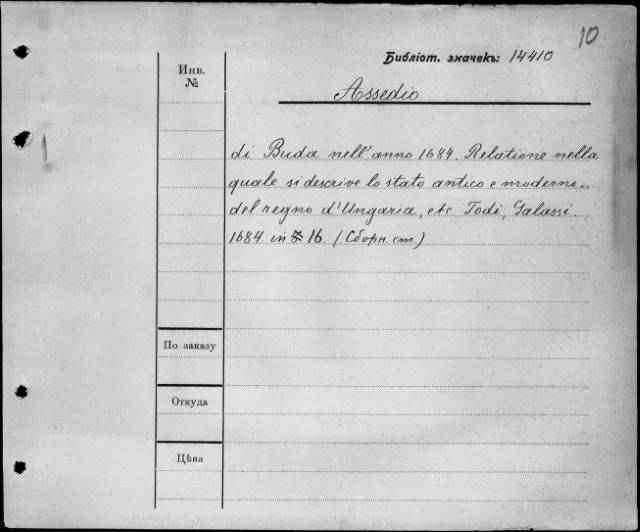 10
Библіот. значекъ: 14410
Инв.
№
Assedio
di Buda nell'anno 1684. Relatione nella
quale si descrive lo stato antico e moderno..
del regno d'Ungaria, etc Todi, Galassi.
1684 in 16. (Сборн. ст.)
По заказу
Откуда
Цѣна